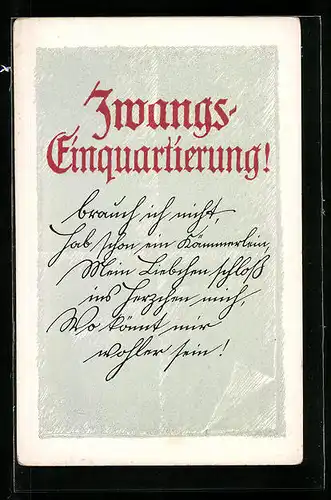 Zwangs-
Einquartierung!
brauch ich nicht,
hab schon ein Kämmerlein,
Mein Liebchen schloß
ins Herzchen mich,
Wo könnt mir
wohler sein!